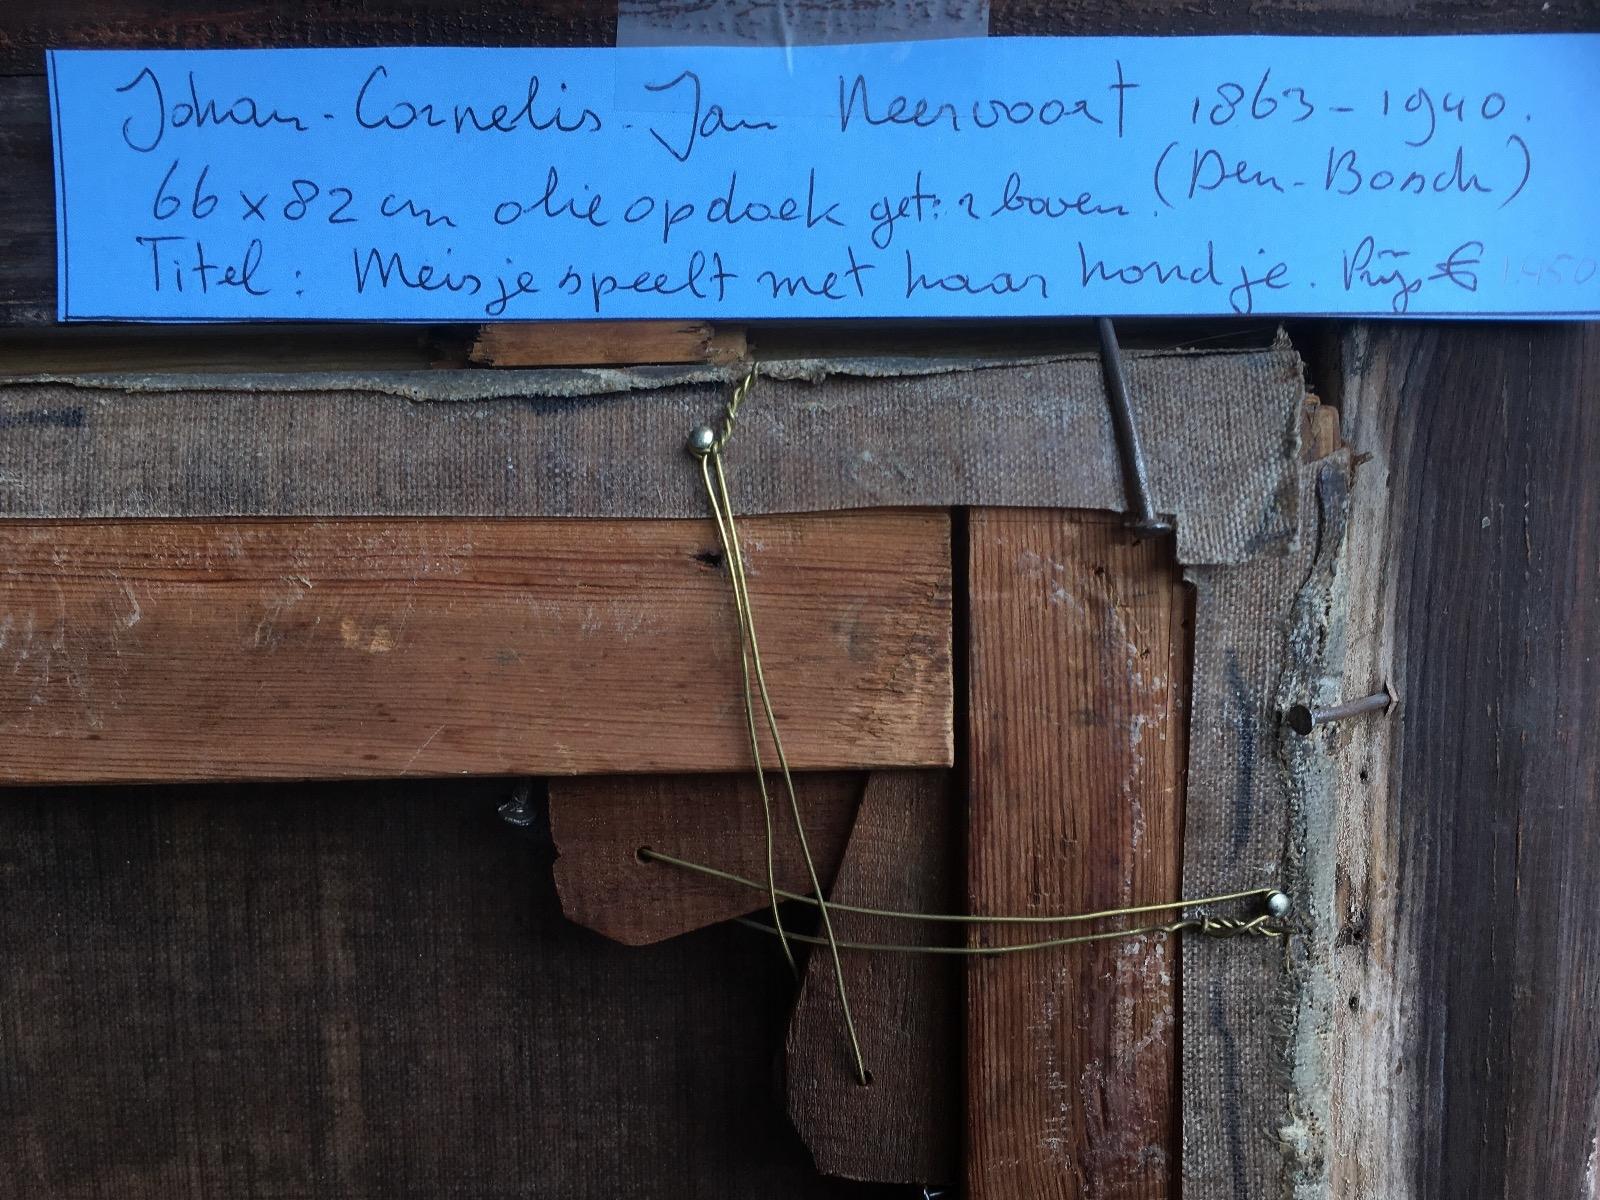 Johan-Cornelis-Jan Neervoort 1863-1940.
66 x 82 cm olie op doek get: r boven. (Den-Bosch)
Titel: Meisje speelt met haar hondje. Prijs € 1.450